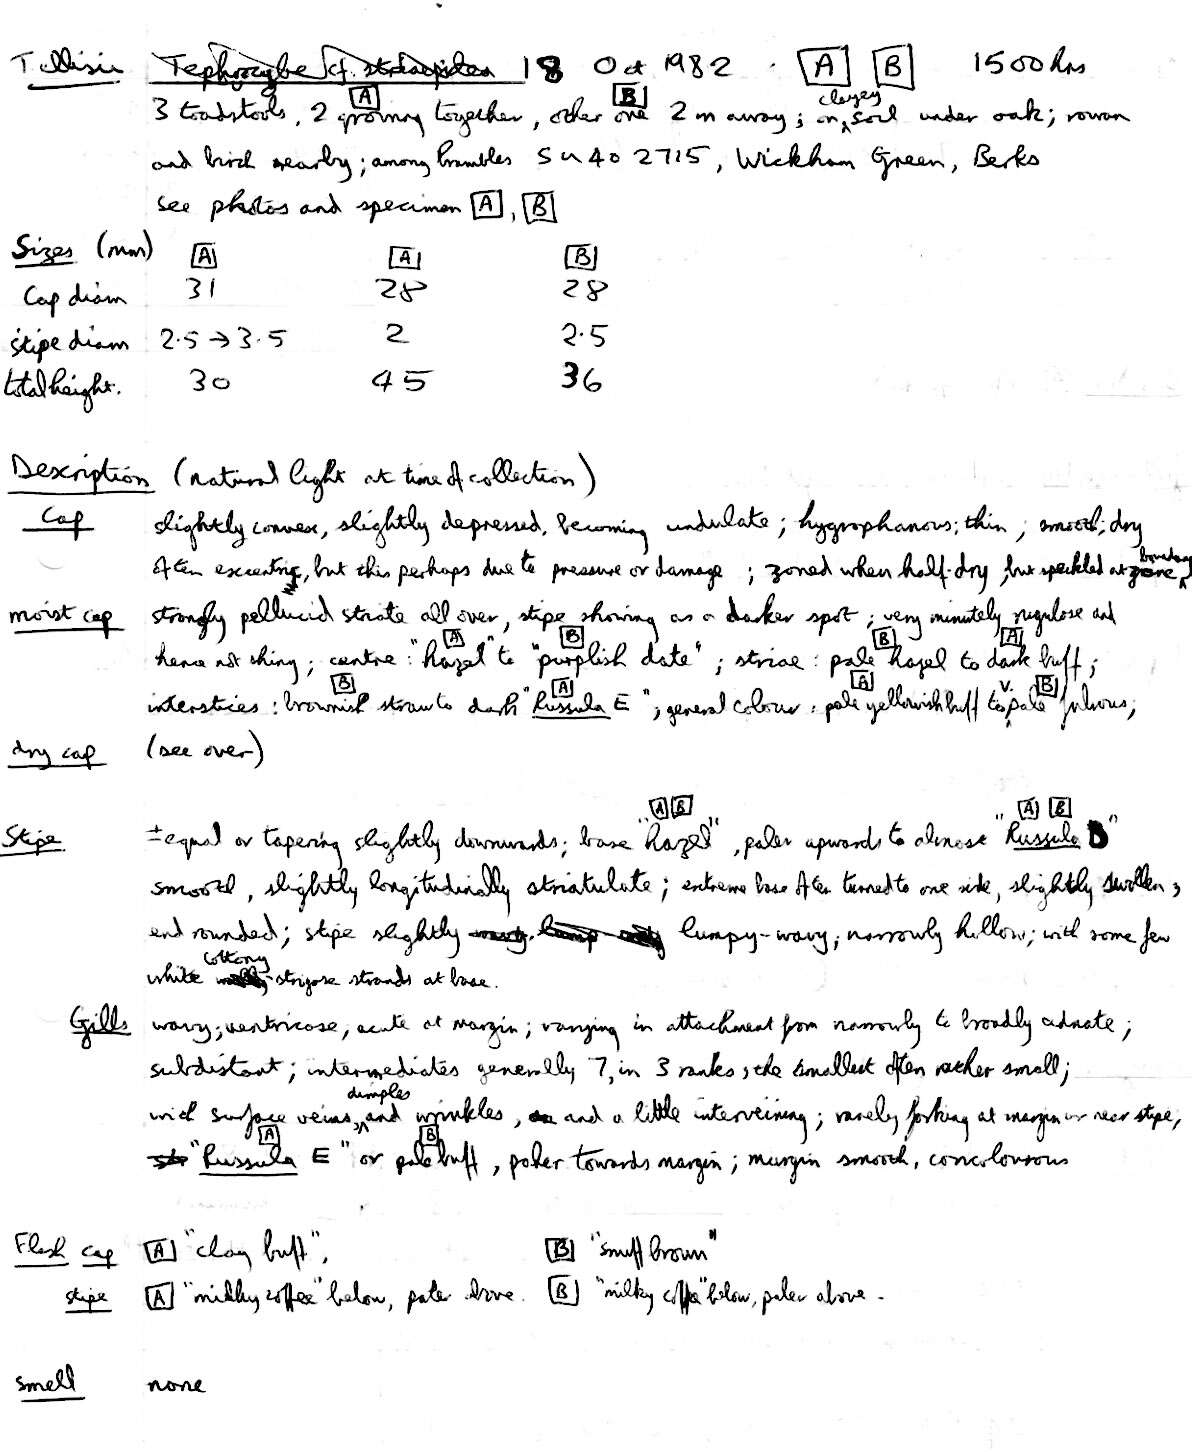 Tephrocybe cf. striaepilea 18 Oct 1982 . A B 1500 hrs
A B clayey
3 toadstools, 2 growing together, other one 2 m away; on soil under oak; rowan
and birch nearby; among brambles SU 40 2715, Wickham Green, Berks
see photos and specimen A, B
Sizes (mm) A A B
Cap diam 31 28 28
stipe diam 2.5 → 3.5 2 2.5
total height. 30 45 36
Description (natural light at time of collection)
Cap slightly convex, slightly depressed, becoming undulate; hygrophanous; thin; smooth; dry
often excentric, but this perhaps due to pressure or damage; zoned when half-dry, but speckled at zone boundary
moist cap strongly pellucid striate all over, stipe showing as a darker spot; very minutely rugulose and
A B B A
hence not shiny; centre: "hazel" to "purplish date"; striae: pale hazel to dark buff;
B A A v. B
interstices: brownish straw to dark "Russula E"; general colour: pale yellowish buff to pale fulvous;
dry cap (see over)
A B A B
Stipe ± equal or tapering slightly downwards; base "hazel", paler upwards to almost "Russula D"
smooth, slightly longitudinally striatulate; extreme base often turned to one side, slightly swollen,
end rounded; stipe slightly lumpy-wavy; narrowly hollow; with some few
cottony
white strigose strands at base.
Gills wavy; ventricose, acute at margin; varying in attachment from narrowly to broadly adnate;
subdistant; intermediates generally 7, in 3 ranks, the smallest often rather small;
dimples
with surface veins, and wrinkles, and a little interveining; rarely forking at margin or near stipe,
A B
"Russula E" or pale buff, paler towards margin; margin smooth, concolourous
Flesh cap A "clay buff", B "snuff brown"
stipe A "milky coffee" below, paler above. B "milky coffee" below, paler above.
smell none